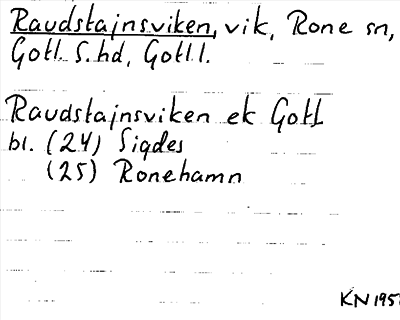 Raudstajnsviken, vik, Rone sn,
Gotl. S. hd, Gotl l.
Raudstajnsviken ek Gotl
bl. (24) Sigdes
(25) Ronehamn
KN